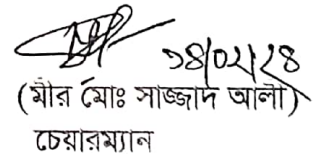 ১৪/০২/২৪
(মীর মোঃ সাজ্জাদ আলী)
চেয়ারম্যান